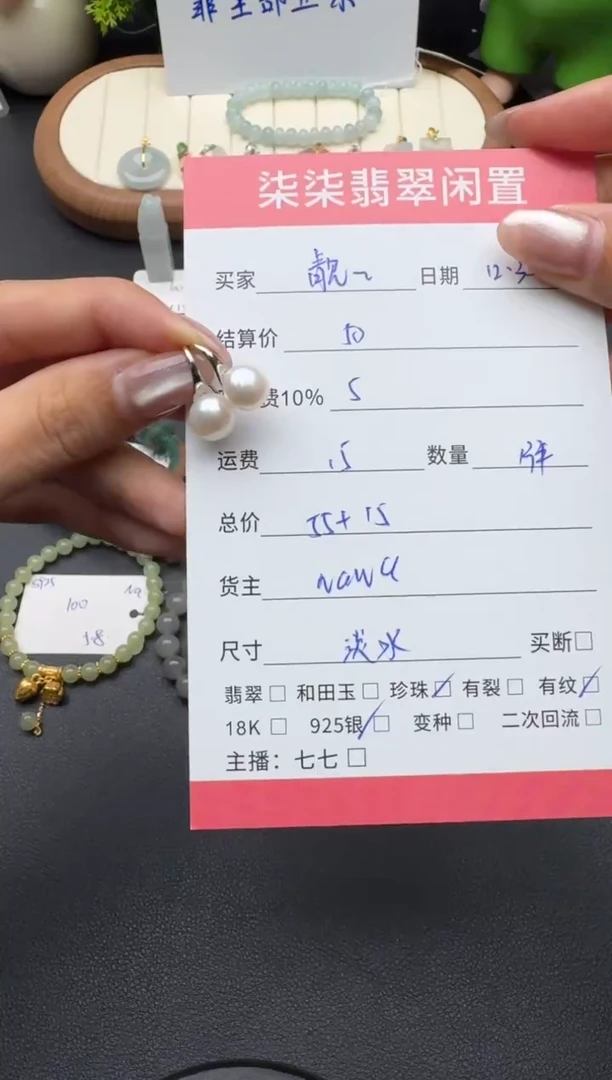 柒柒翡翠闲置
买家 靓 日期 12.3
结算价 50
费10% 5
运费 15 数量 1件
总价 55+15
货主 nawa
尺寸 淡水 买断□
翡翠□ 和田玉□ 珍珠□ 有裂□ 有纹□
18K□ 925银□ 变种□ 二次回流□
主播：七七□
100